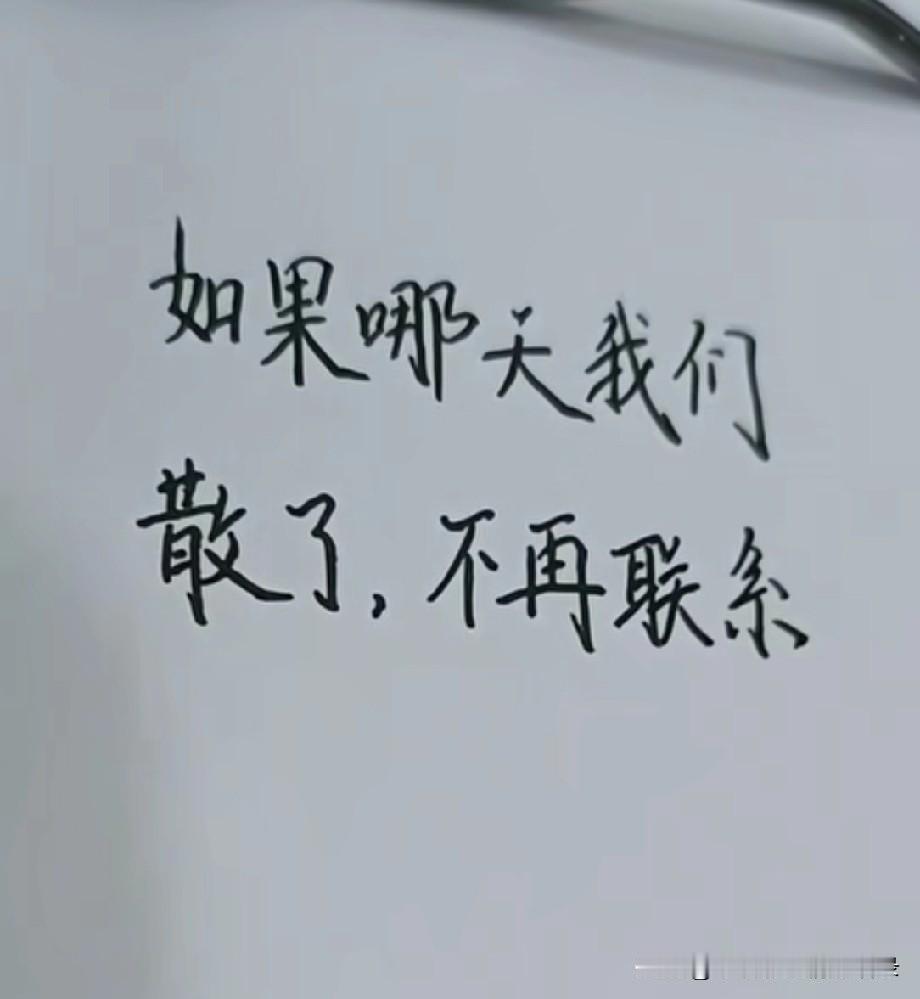 如果哪天我们
散了,不再联系